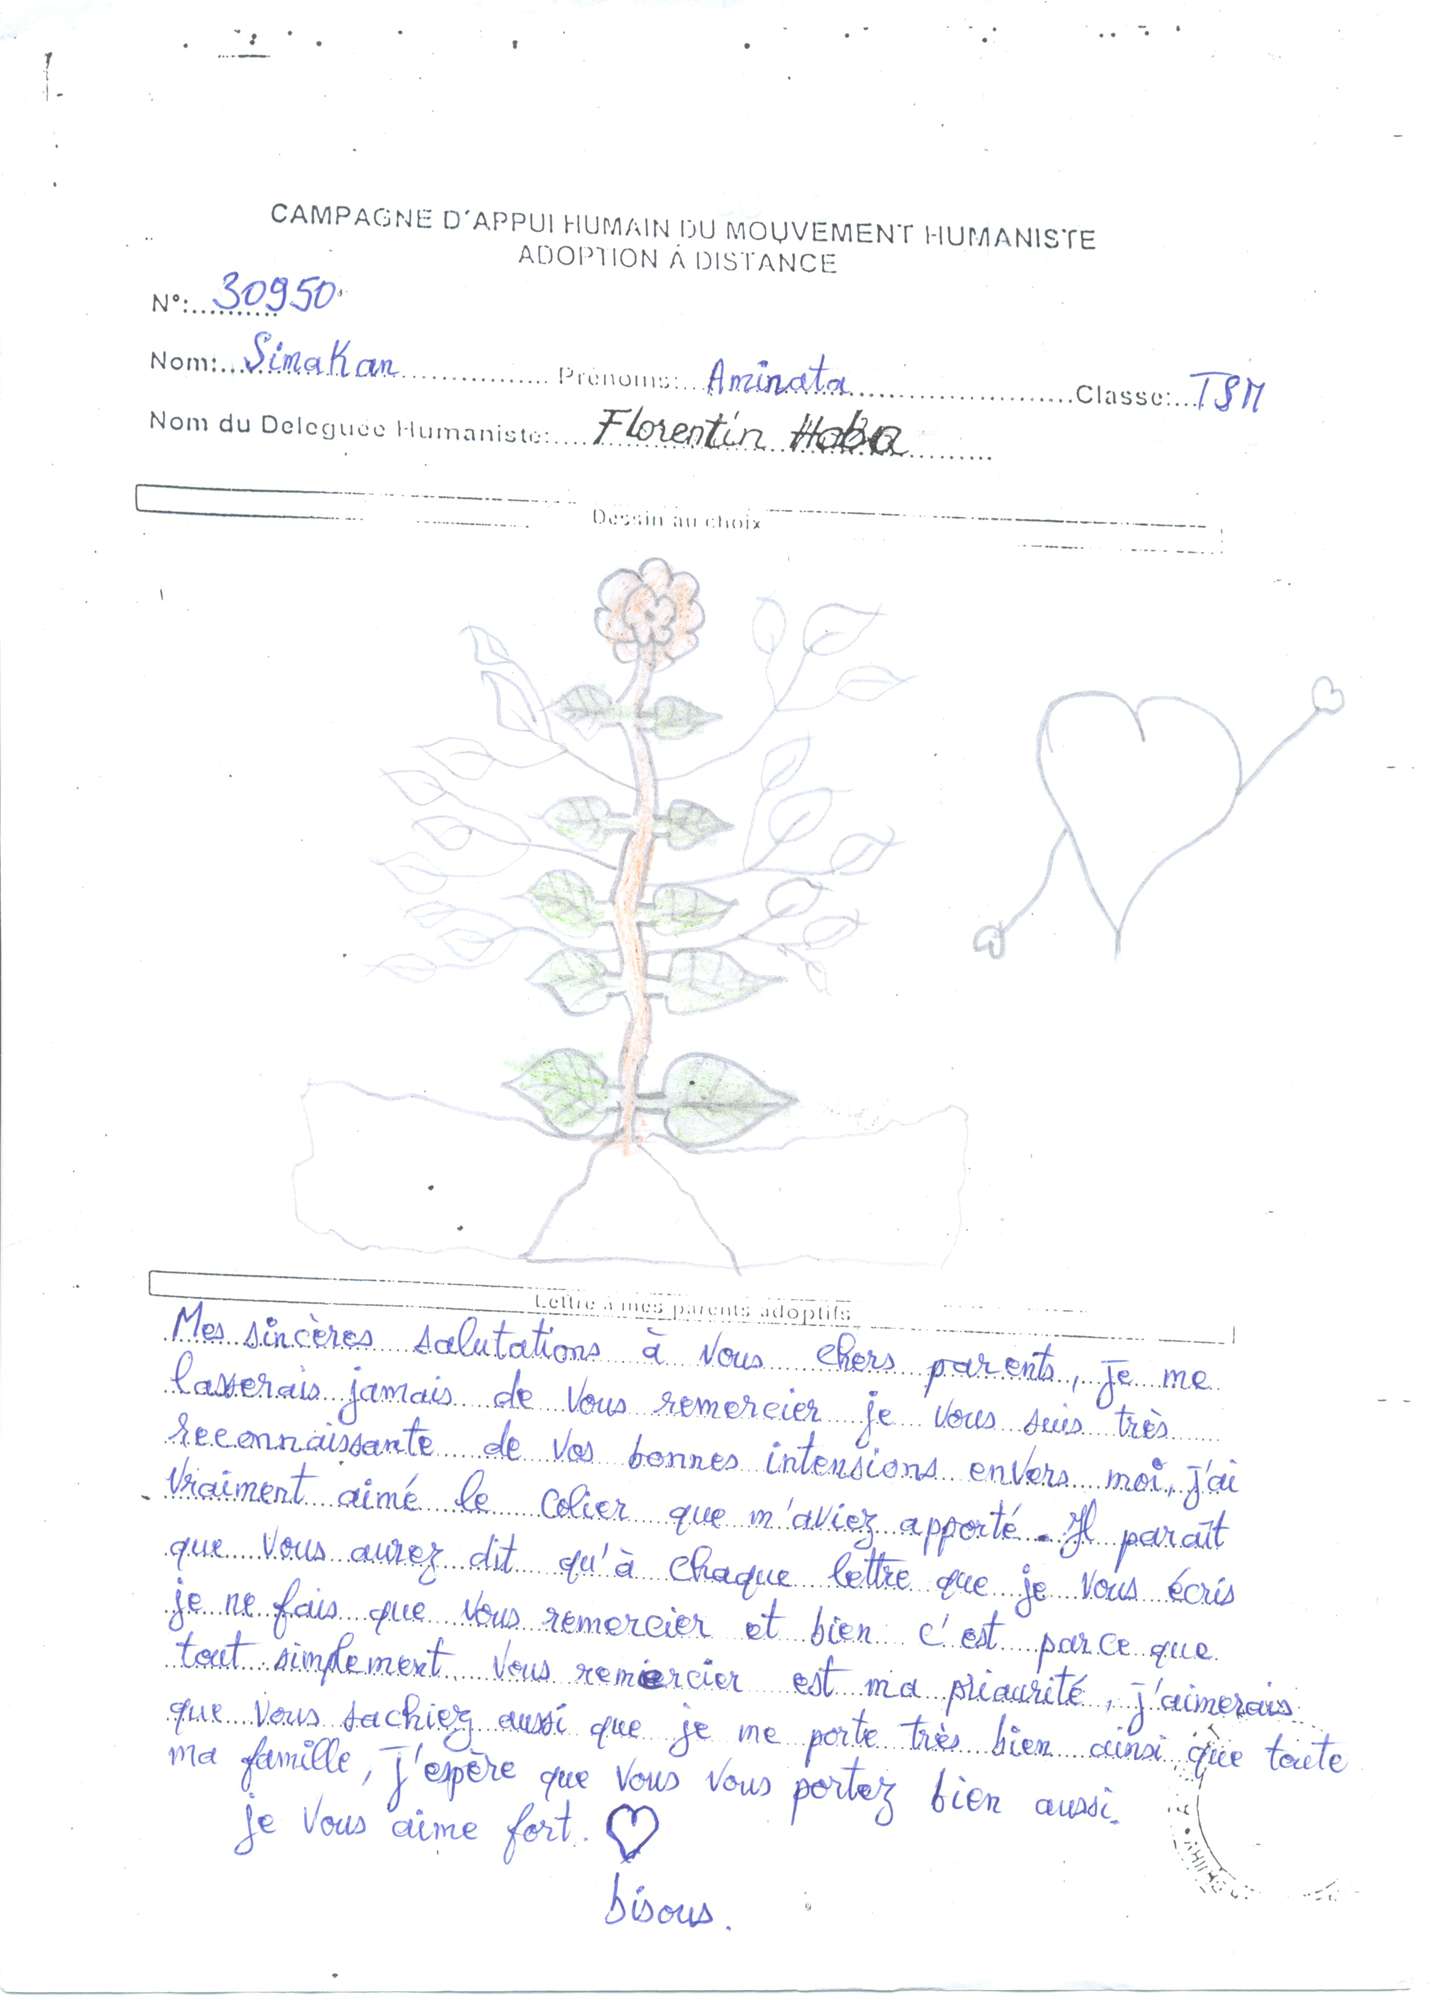 CAMPAGNE D'APPUI HUMAIN DU MOUVEMENT HUMANISTE
ADOPTION À DISTANCE
N°:..........30950
Nom:...SimaKan.................. Prénoms:...Aminata........................Classe:...TSM
Nom du Deleguée Humaniste:....Florentin Haba........
Dessin au choix
Lettre à mes parents adoptifs
Mes sincères salutations à vous chers parents, je me
lasserais jamais de vous remercier je vous suis très
reconnaissante de vos bonnes intensions envers moi, j'ai
vraiment aimé le colier que m'aviez apporté. Il paraît
que vous aurez dit qu'à chaque lettre que je vous écris
je ne fais que vous remercier et bien c'est parce que
tout simplement vous remercier est ma priaurité, j'aimerais
que vous sachiez aussi que je me porte très bien ainsi que toute
ma famille, j'espère que vous vous portez bien aussi.
je vous aime fort.
bisous.